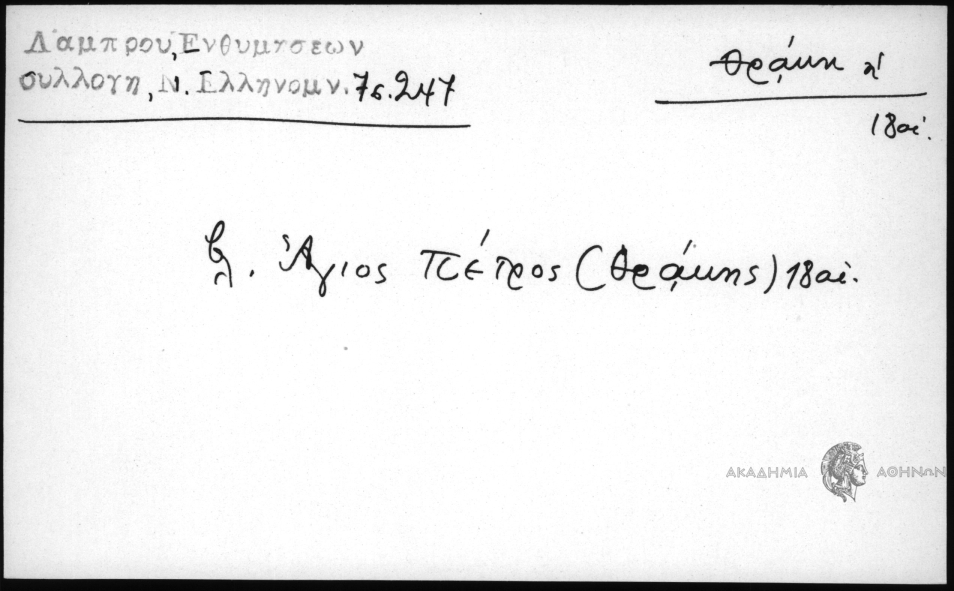 Λαμπρου, Ενθυμησεων
Θράκη
συλλογη, Ν. Ελληνομν. 7ς.247
18αι.
βλ. Άγιος Πέτρος (Θράκης) 18αι.
ΑΚΑΔΗΜΙΑ ΑΘΗΝΩΝ